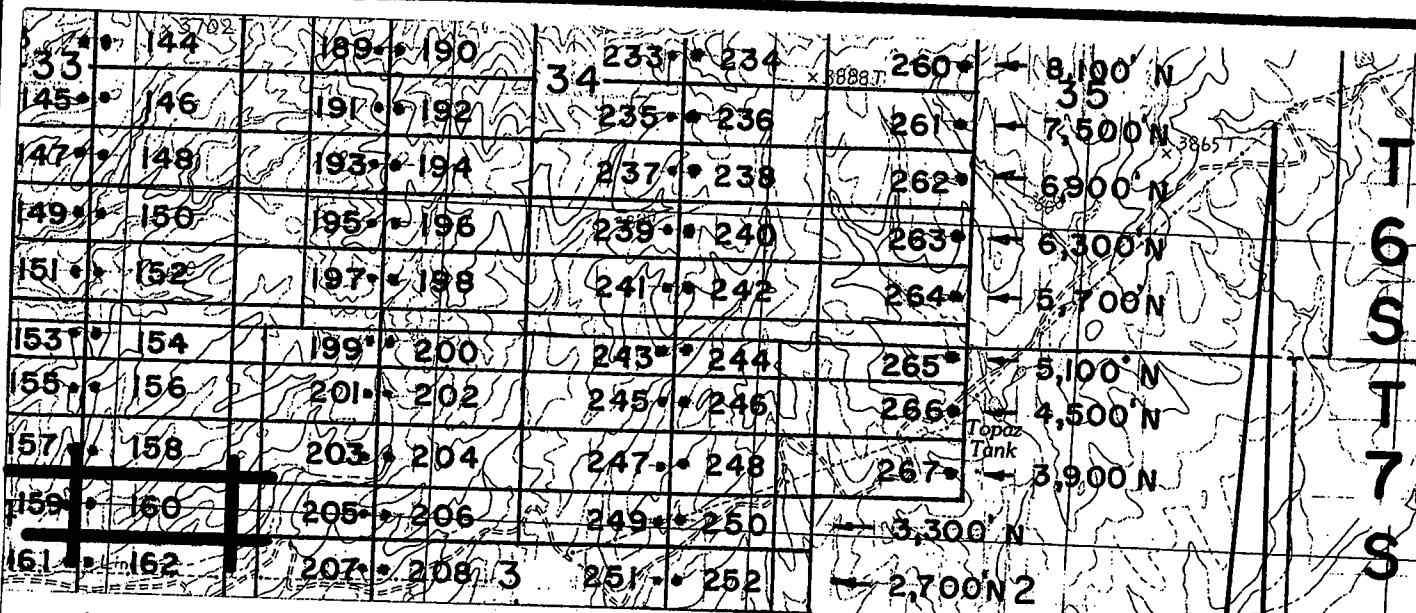 3702
33 144 189 190 34 233 234 3888T 260 8,100' N
35
145 146 191 192 235 236 261 7,500'N
3865T
147 148 193 194 237 238 262 6,900'N
149 150 195 196 239 240 263 6,300'N
151 152 197 198 241 242 264 5,700'N
153 154 199 200 243 244 265 5,100'N
155 156 201 202 245 246 266 4,500'N
Topaz
Tank
157 158 203 204 247 248 267 3,900'N
159 160 205 206 249 250 3,300'N
161 162 207 208 3 251 252 2,700'N 2
T
6
S
T
7
S